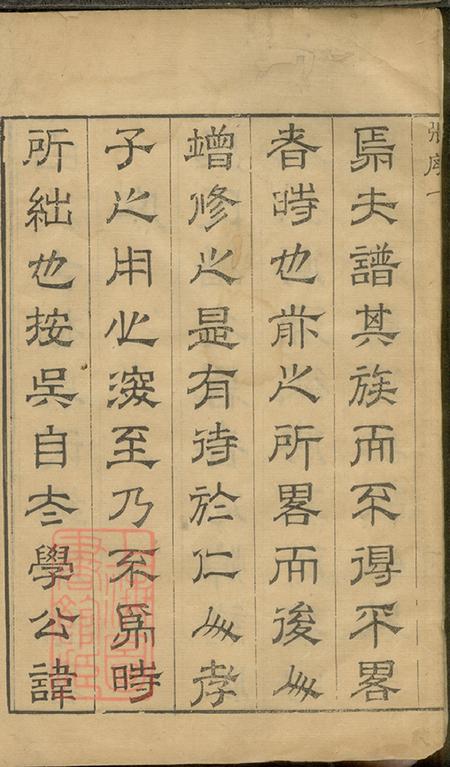 張序一
焉夫譜其族而不得不畧
者時也前之所畧而後人
增修之是有待於仁人孝
子之用心深至乃不爲時
所絀也按吳自太學公諱